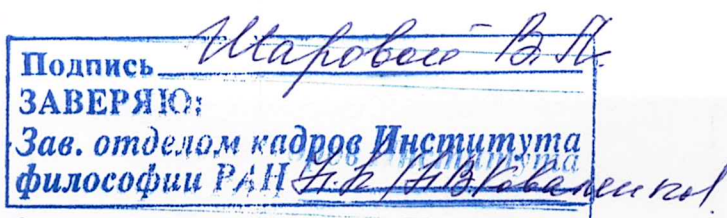 Подпись Шаровой В.П.
ЗАВЕРЯЮ:
Зав. отделом кадров Института
философии РАН